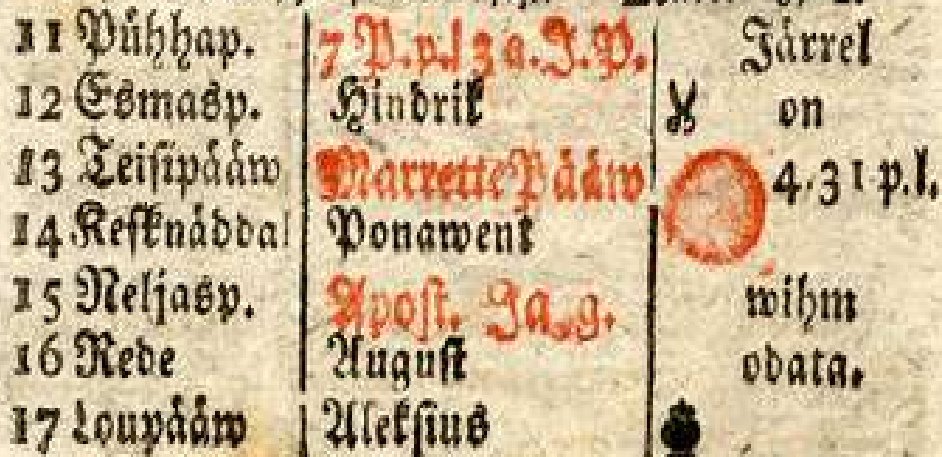 11 Pühhap. 7 P.p.l 3 a. J. P. Järrel
12 Esmasp. Hindrik on
13 Teisipääw Marrette Pääw 4.31 p.l.
14 Kesknäddal Ponawent
15 Neljasp. Apost. Jag. wihm
16 Rede August odata.
17 Loupääw Aleksius